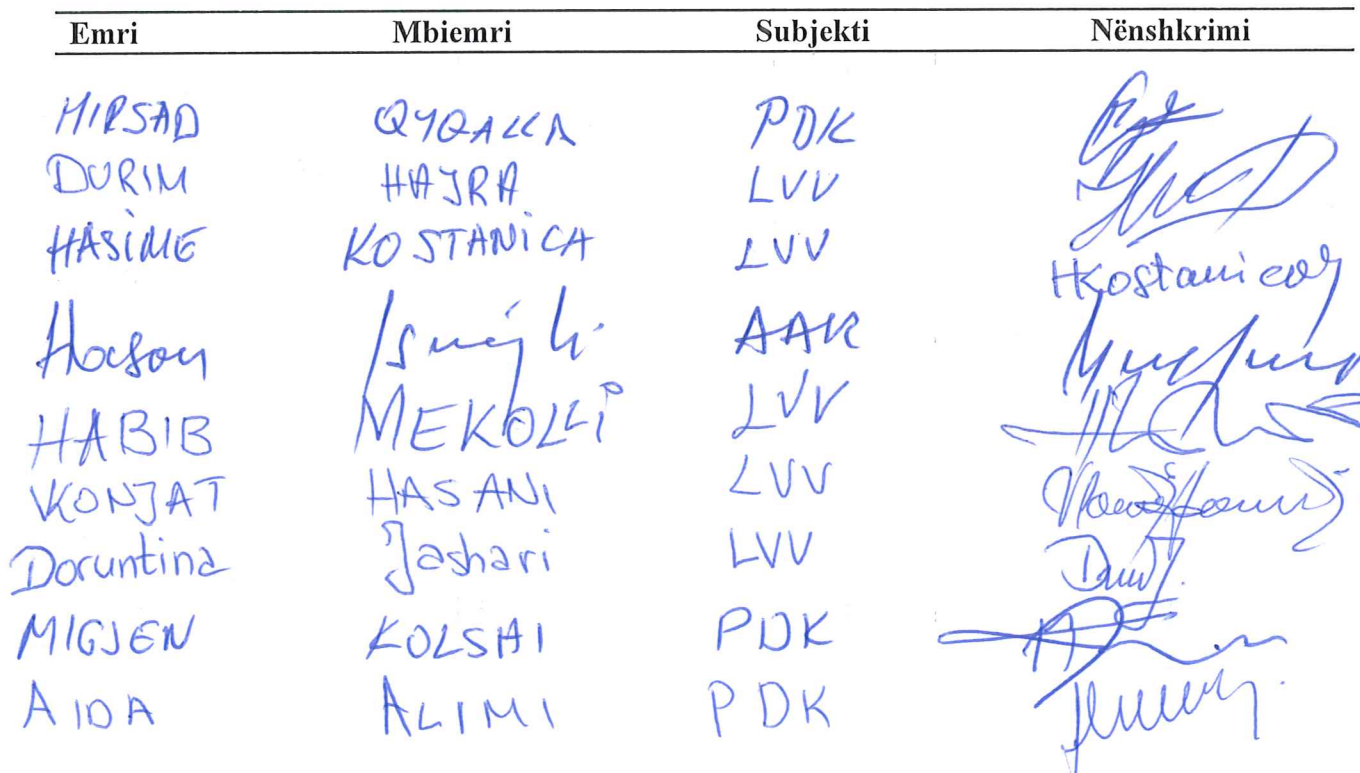 Emri Mbiemri Subjekti Nënshkrimi
MIRSAD QYQALLA PDK
DURIM HAJRA LVV
HASIME KOSTANICA LVV HKostanica
Hasan Ismajli AAK
HABIB MEKOLLI LVV
KONJAT HASANI LVV
Doruntina Jashari LVV
MIGJEN KOLSHI PDK
AIDA ALIMI PDK